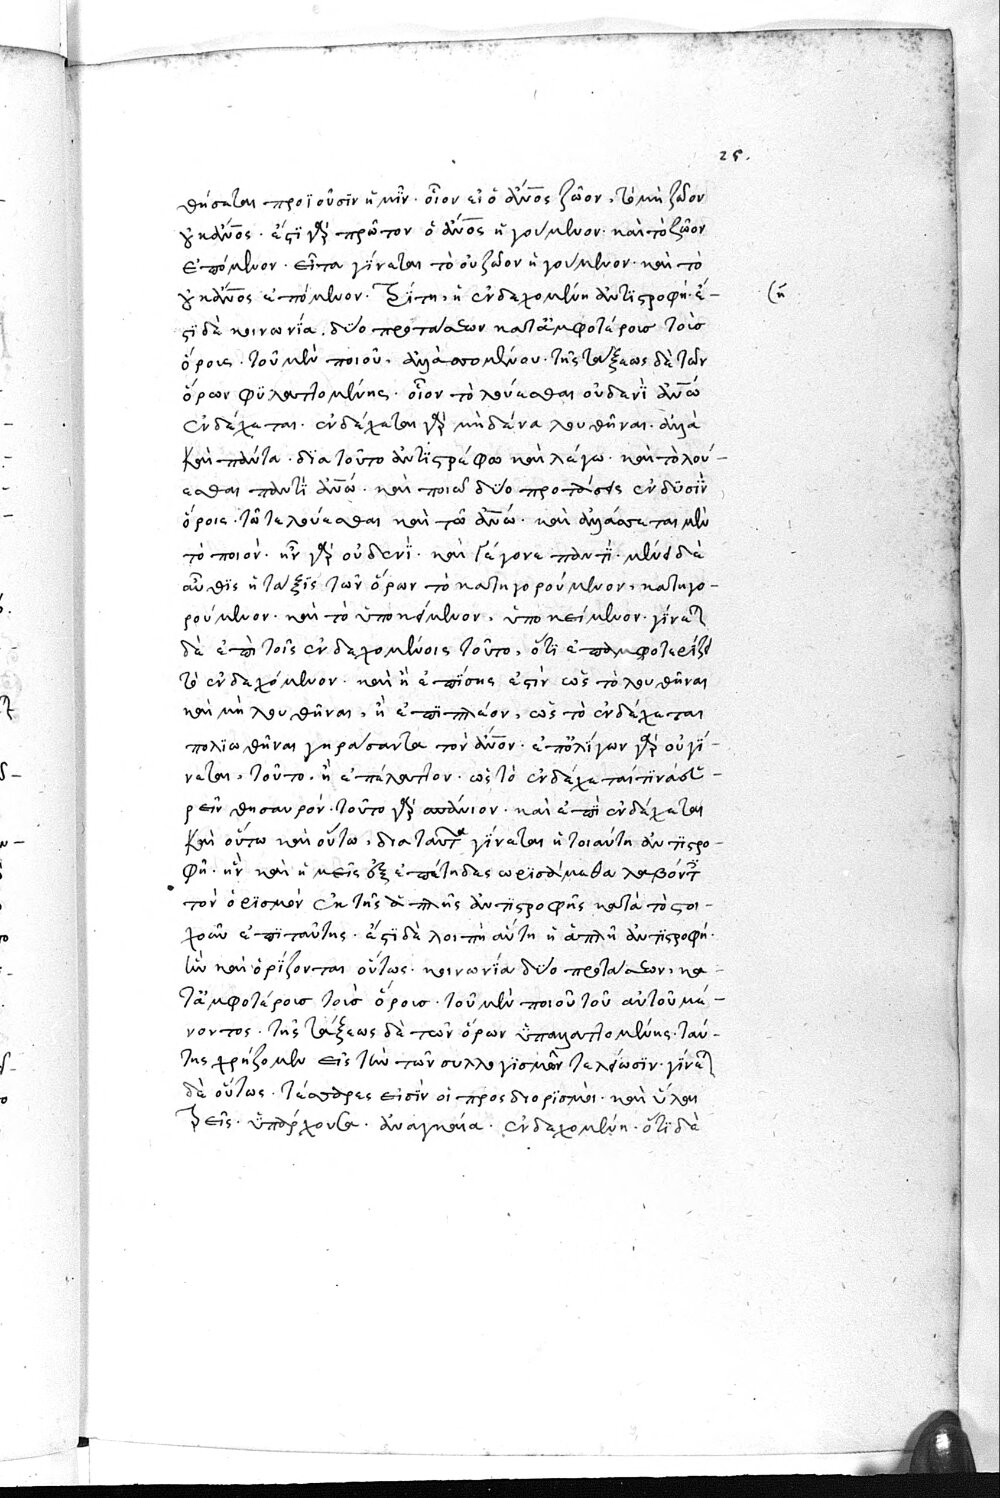 25.
θήσεται προϊοῦσιν ἡμῖν· οἷον εἰ ὁ ἄνος ζῶον, τὸ μὴ ζῶον
οὐκ ἄνος· ἔστι γὰρ πρῶτον ὁ ἄνος ἡγούμενον· καὶ τὸ ζῶον
ἑπόμενον· εἶτα γίνεται τὸ οὐ ζῶον ἡγούμενον· καὶ τὸ
οὐκ ἄνος ἑπόμενον· τρίτη, ἡ ἐνδεχομένη ἀντιστροφή· ἔ-
(ῆ
στι δὲ κοινωνία, δύο προτάσεων κατ' ἀμφοτέροις τοῖς
ὅροις· τοῦ μὲν ποιοῦ, ἀλλασσομένου· τῆς τάξεως δὲ τῶν
ὅρων φυλαττομένης· οἷον τὸ λούεσθαι οὐδενὶ ἀνω
ἐνδέχεται· ἐνδέχεται γὰρ μηδένα λουθῆναι· ἀλλὰ
καὶ πάντα· διὰ τοῦτο ἀντιστρέφω καὶ λέγω· καὶ τὸ λού-
εσθαι παντὶ ἀνω· καὶ ποιῶ δύο προτάσεις ἐν δυσὶν
ὅροις· τῶ τε λούεσθαι καὶ τῶ ἀνω· καὶ ἀλλάσσεται μὲν
τὸ ποιόν· ἦν γὰρ οὐδενί· καὶ γέγονε παντί· μένει δὲ
αὖθις ἡ τάξις τῶν ὅρων τὸ κατηγορούμενον, κατηγο-
ρούμενον· καὶ τὸ ὑποκείμενον, ὑποκείμενον· γίνεται
δὲ ἐπὶ τοῖς ἐνδεχομένοις τοῦτο, ὅτι ἐπαμφοτερίζει
τὸ ἐνδεχόμενον· καὶ ἢ ἐπίσης ἐστὶν ὡς τὸ λουθῆναι
καὶ μὴ λουθῆναι, ἢ ἐπὶ πλέον, ὡς τὸ ἐνδέχεται
πολιωθῆναι γηράσαντα τὸν ἄνον· ἐπ' ὀλίγων γὰρ οὐ γί-
νεται, τοῦτο, ἢ ἐπέλαττον· ὡς τὸ ἐνδέχεταί τινα εὑ-
ρεῖν θησαυρόν· τοῦτο γὰρ σπάνιον· καὶ ἐπεὶ ἐνδέχεται
καὶ οὕτω καὶ οὕτω, διὰ ταῦτα γίνεται ἡ τοιαύτη ἀντιστρο-
φή· ἣν καὶ ἡμεῖς ἐξεπίτηδες ὡρισάμεθα λαβόντες
τὸν ὁρισμὸν ἐκ τῆς ἁπλῆς ἀντιστροφῆς κατὰ τὸ στοι-
χοῦν ἐπὶ ταύτης· ἔστι δὲ λοιπὴ αὕτη ἡ ἁπλῆ ἀντιστροφή·
ἣν καὶ ὁρίζονται οὕτως· κοινωνία δύο προτάσεων, κα-
τ' ἀμφοτέροις τοῖς ὅροις· τοῦ μὲν ποιοῦ τοῦ αὐτοῦ μέ-
νοντος· τῆς τάξεως δὲ τῶν ὅρων ὑπαλλαττομένης· ταύ-
της χρήζομεν εἰς τὴν τῶν συλλογισμῶν τελείωσιν· γίνεται
δὲ οὕτως· τέσσαρες εἰσὶν οἱ προσδιορισμοὶ· καὶ ὗλαι
τρεῖς· ὑπάρχουσα· ἀναγκαία· ἐνδεχομένη· ὅτι δὲ